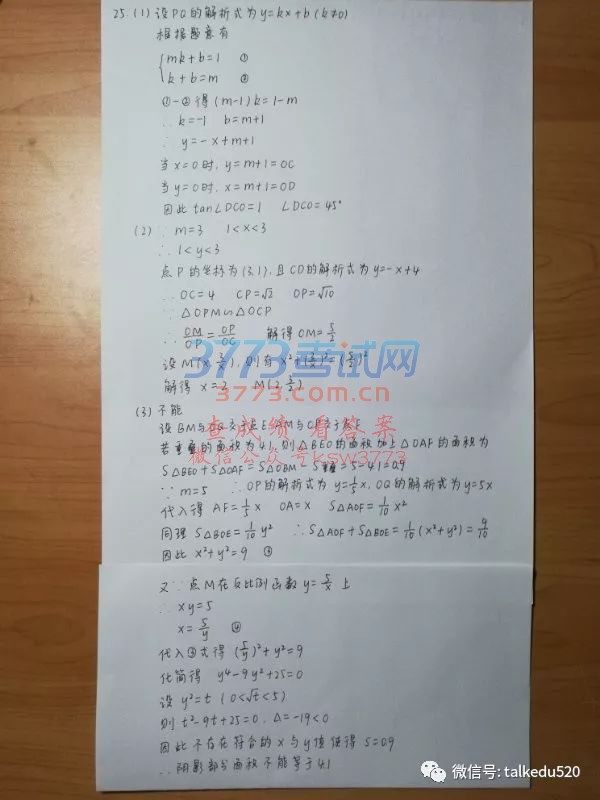 25. (1) 设PQ的解析式为 y=kx+b (k≠0)
根据题意有
{mk+b=1 ①
k+b=m ②
①-②得 (m-1)k=1-m
∴ k=-1 b=m+1
∴ y=-x+m+1
当x=0时, y=m+1=OC
当y=0时, x=m+1=OD
因此 tan∠DCO=1 ∠DCO=45°
(2) ∵ m=3 1<x<3
∴ 1<y<3
点P的坐标为(3,1), 且CD的解析式为y=-x+4
∴ OC=4 CP=√2 OP=√10
∵ △OPM∽△OCP
∴ OM/OP=OP/OC 解得OM=5/2
设M(x, 3/x), 则有 x²+(3/x)²=(5/2)²
解得 x=2 M(2, 3/2)
3773考试网
www.3773.com.cn
(3) 不能
查成绩 看答案
设BM与OQ交于点E, AM与OP交于点F
微信公众号ksw3773
若重叠的面积为4.1, 则△BEO的面积加上△OAF的面积为
S△BEO+S△OAF=S△OBM-S重叠=5-4.1=0.9
∵ m=5 ∴OP的解析式为 y=1/5x, OQ的解析式为y=5x
代入得 AF=1/5x OA=x S△AOF=1/10x²
同理 S△BOE=1/10y² ∴S△AOF+S△BOE=1/10(x²+y²)=9/10
因此 x²+y²=9 ③
又∵点M在反比例函数y=5/x上
∴ xy=5
x=5/y ④
代入③式得 (5/y)²+y²=9
化简得 y⁴-9y²+25=0
设 y²=t (0<√t<5)
则 t²-9t+25=0, Δ=-19<0
因此不存在符合的x与y值使得S=0.9
∴阴影部分面积不能等于4.1
微信号: talkedu520